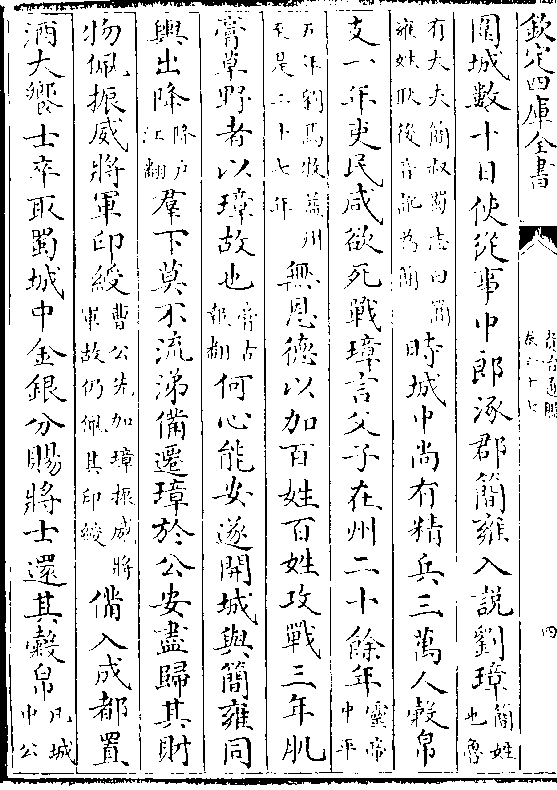 欽定四庫全書
圍城數十日使從事中郎涿郡簡雍入説劉璋簡姓也魯
有大夫簡叔蜀志曰簡雍姓耿後音訛為簡時城中尚有精兵三萬人穀帛
支一年吏民咸欲死戰璋言父子在州二十餘年靈帝中平
五年劉焉牧益州至是二十七年無恩德以加百姓百姓攻戰三年肌
膏草野者以璋故也膏古報翻何心能安遂開城與簡雍同
輿出降降户江翻羣下莫不流涕備遷璋於公安盡歸其財
物佩振威將軍印綬曹公先加璋振威將軍故仍佩其印綬備入成都置
酒大饗士卒取蜀城中金銀分賜將士還其穀帛凡城中公
資治通鑑
卷六十七
四